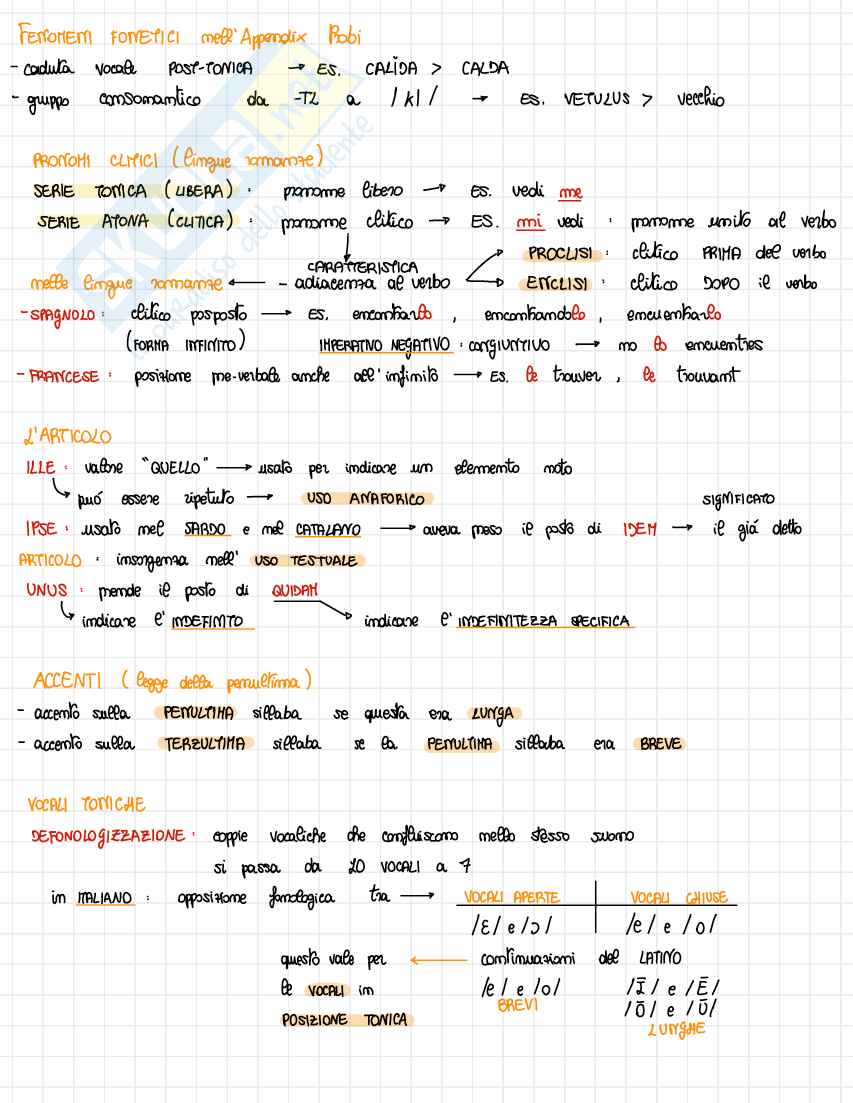 FENOMENI FONETICI nell'Appendix Probi
- caduta vocale POST-TONICA → ES. CALĬDA > CALDA
- gruppo consonantico da -TL a /kl/ → ES. VETULUS > vecchio
PRONOMI CLITICI (lingue romanze)
SERIE TONICA (LIBERA): pronome libero → ES. vedi me
SERIE ATONA (CLITICA): pronome clitico → ES. mi vedi : pronome unito al verbo
PROCLISI: clitico PRIMA del verbo
CARATTERISTICA
nelle lingue romanze ← - adiacenza al verbo
ENCLISI: clitico DOPO il verbo
- SPAGNOLO: clitico posposto → ES. encontrarlo, encontrandolo, encuentralo
(FORMA INFINITO) IMPERATIVO NEGATIVO: CONGIUNTIVO → no lo encuentres
- FRANCESE: posizione pre-verbale anche all'infinito → ES. le trouver, le trouvant
L'ARTICOLO
ILLE: valore "QUELLO" → usato per indicare un elemento noto
può essere ripetuto → USO ANAFORICO
SIGNIFICATO
IPSE: usato nel SARDO e nel CATALANO → aveva preso il posto di IDEM → il già detto
ARTICOLO: insorgenza nell' USO TESTUALE
UNUS: prende il posto di QUIDAM
indicare l'INDEFINITO indicare l'INDEFINITEZZA SPECIFICA
ACCENTI (legge della penultima)
- accento sulla PENULTIMA sillaba se questa era LUNGA
- accento sulla TERZULTIMA sillaba se la PENULTIMA sillaba era BREVE
VOCALI TONICHE
DEFONOLOGIZZAZIONE: coppie vocaliche che confluiscono nello stesso suono
si passa da 10 VOCALI a 7
in ITALIANO: opposizione fonologica tra → VOCALI APERTE VOCALI CHIUSE
/Ɛ/ e /ɔ/ /e/ e /o/
questo vale per ← continuazioni del LATINO
le VOCALI in /e/ e /o/ /Ī/ e /Ē/
BREVI /Ō/ e /Ū/
POSIZIONE TONICA LUNGHE
SKUOLA.net
il paradiso dello studente